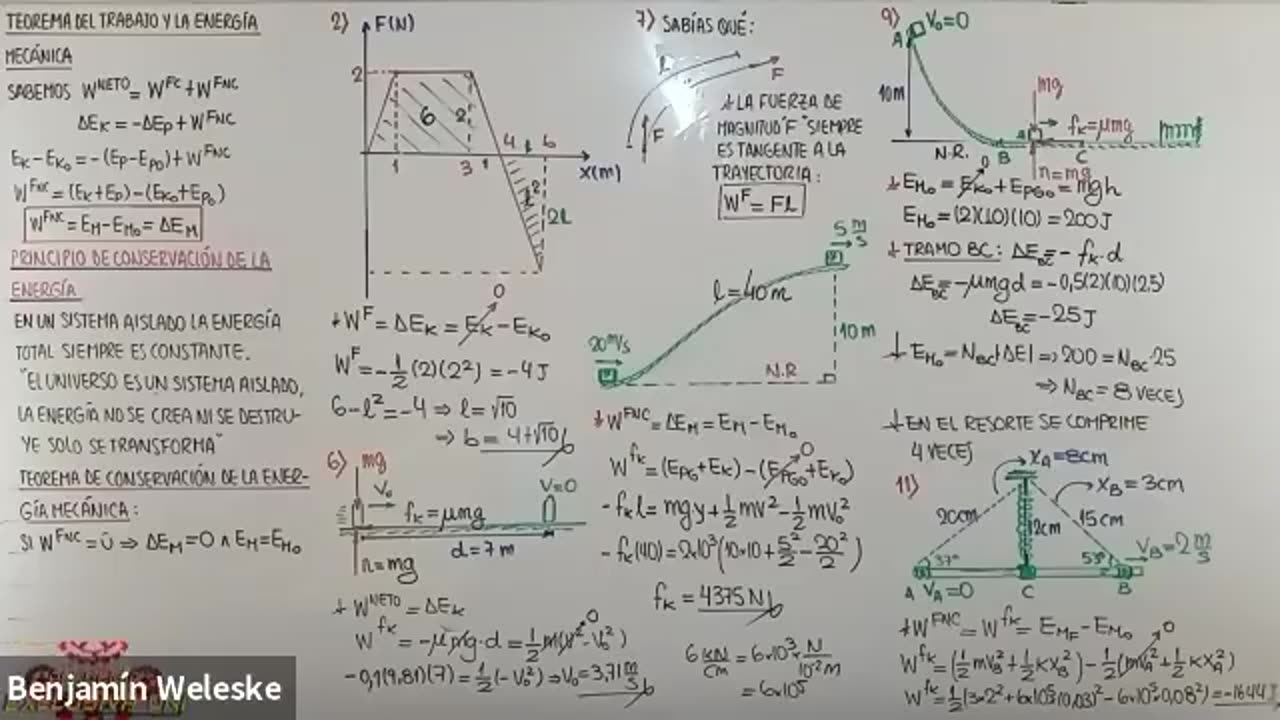 TEOREMA DEL TRABAJO Y LA ENERGÍA
MECÁNICA
SABEMOS W^NETO = W^FC + W^FNC
ΔEK = -ΔEP + W^FNC
EK - EK0 = -(EP - EP0) + W^FNC
W^FNC = (EK + EP) - (EK0 + EP0)
W^FNC = EM - EM0 = ΔEM
PRINCIPIO DE CONSERVACIÓN DE LA
ENERGÍA
EN UN SISTEMA AISLADO LA ENERGÍA
TOTAL SIEMPRE ES CONSTANTE.
"EL UNIVERSO ES UN SISTEMA AISLADO,
LA ENERGÍA NO SE CREA NI SE DESTRU-
YE SOLO SE TRANSFORMA"
TEOREMA DE CONSERVACIÓN DE LA ENER-
GÍA MECÁNICA:
SI W^FNC = 0 ⇒ ΔEM = 0 ∧ EM = EM0
Benjamín Weleske
2)
F(N)
2
6
2
4 l b
1 3 1
X(m)
l²
2l
0
W^F = ΔEK = EK - EK0
W^F = -1/2 (2)(2²) = -4J
6 - l² = -4 ⇒ l = √10
⇒ b = 4+√10
6)
mg
V0
V=0
fK = μmg
d = 7m
n = mg
W^NETO = ΔEK
0
W^fK = -μmg·d = 1/2 m(V² - V0²)
-0,1(9,81)(7) = 1/2(-V0²) ⇒ V0 = 3,71 m/s
7) SABÍAS QUÉ:
l
F
F
LA FUERZA DE
MAGNITUD "F" SIEMPRE
ES TANGENTE A LA
TRAYECTORIA:
W^F = Fl
5 m/s
l = 40m
10m
20 m/s
N.R
W^FNC = ΔEM = EM - EM0
0
W^fK = (EPG + EK) - (EPG0 + EK0)
-fK l = mgy + 1/2 mV² - 1/2 mV0²
-fK(40) = 2×10³(10×10 + 5²/2 - 20²/2)
fK = 4375N
6 KN/cm = 6×10³ × N/10⁻²m
= 6×10⁵
9)
V0=0
A
mg
10m
fK = μmg
N.R.
B
C
n=mg
0
EM0 = EK0 + EPG0 = mgh
EM0 = (2)(10)(10) = 200J
TRAMO BC: ΔE BC = -fK·d
ΔE BC = -μmgd = -0,5(2)(10)(2.5)
ΔE BC = -25J
EM0 = NBC|ΔE| ⇒ 200 = NBC·25
⇒ NBC = 8 VECES
EN EL RESORTE SE COMPRIME
4 VECES
11)
XA = 8cm
XB = 3cm
20cm
12cm
15cm
37°
53°
VB = 2 m/s
A VA=0
C
B
W^FNC = W^fK = EMF - EM0
0
W^fK = (1/2 mVB² + 1/2 KXB²) - 1/2(mVA² + 1/2 KXA²)
W^fK = 1/2(3×2² + 6×10⁵(0,03)² - 6×10⁵×0,08²) = -1644J